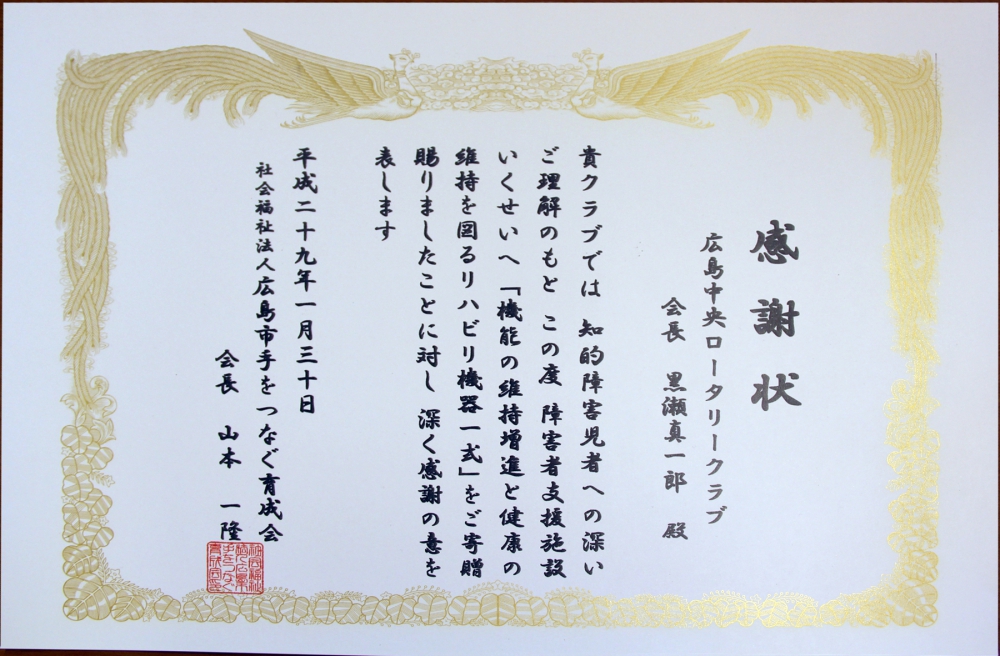 感謝状
広島中央ロータリークラブ
会長 黒瀬真一郎 殿
貴クラブでは 知的障害児者への深い
ご理解のもと この度 障害者支援施設
いくせいへ「機能の維持増進と健康の
維持を図るリハビリ機器一式」をご寄贈
賜りましたことに対し 深く感謝の意を
表します
平成二十九年一月三十日
社会福祉法人広島市手をつなぐ育成会
会長 山本 一隆